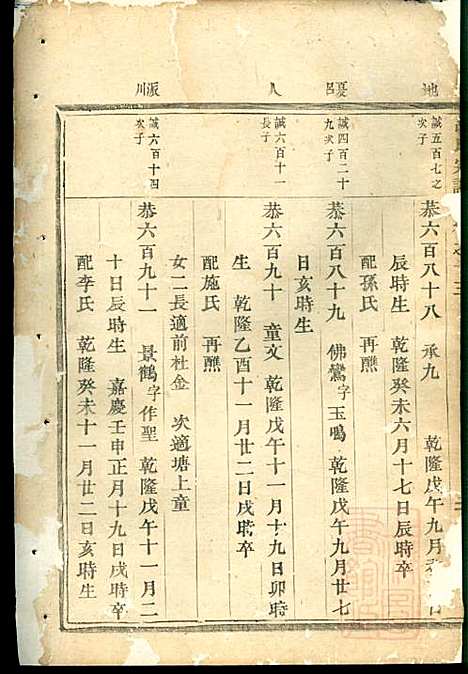 地
誠五百七之
次子
恭六百八十八 承九 乾隆戊午九月
辰時生 乾隆癸未六月十七日辰時卒
配孫氏 再醮
夏
呂
誠四百二十
九次子
恭六百八十九 佛鸞字玉鳴 乾隆戊午九月廿七
日亥時生
人
誠六百十一
長子
恭六百九十 童文 乾隆戊午十一月十九日卯時
生 乾隆乙酉十一月廿二日戌時卒
配施氏 再醮
女二長適前杜金 次適塘上童
派
川
誠六百十四
次子
恭六百九十一 景鶴字作聖 乾隆戊午十一月二
十日辰時生 嘉慶壬申正月十九日戌時卒
配李氏 乾隆癸未十一月廿二日亥時生